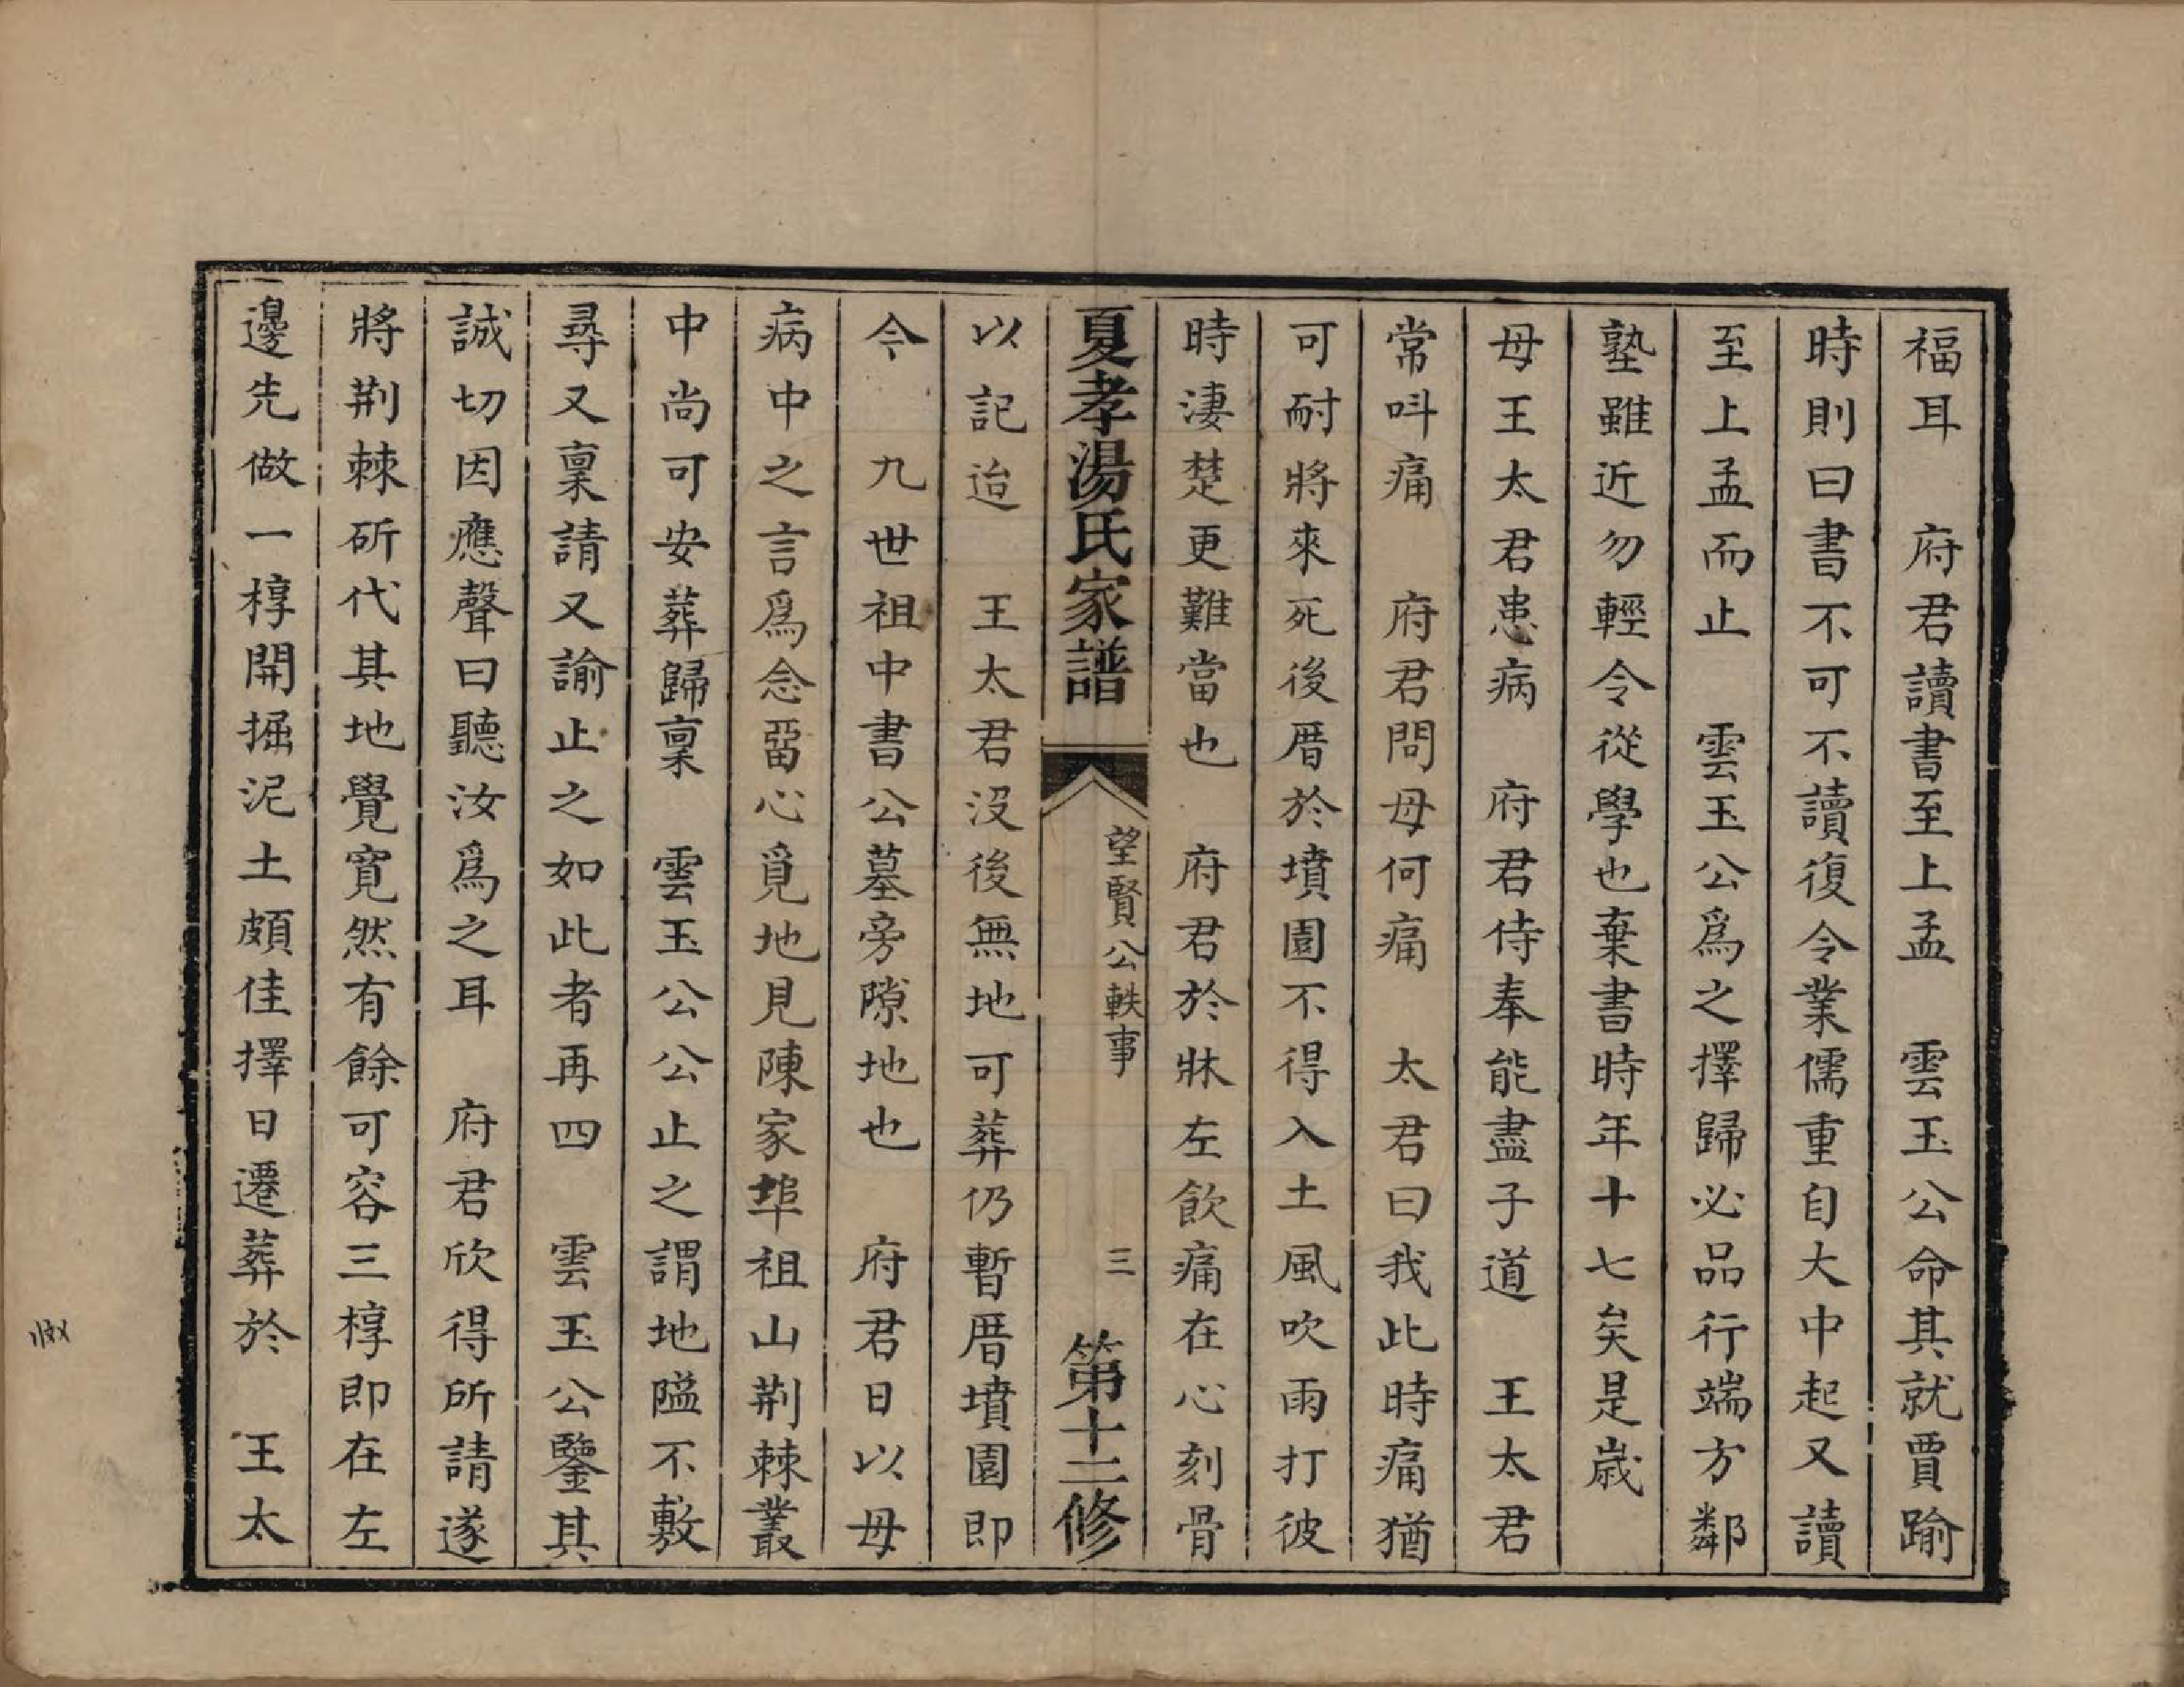 福耳　府君讀書至上孟　雲玉公命其就賈踰
時則曰書不可不讀復令業儒重自大中起又讀
至上孟而止　雲玉公爲之擇歸必品行端方鄰
塾雖近勿輕令從學也棄書時年十七矣是歲
母王太君患病　府君侍奉能盡子道　王太君
常呌痛　府君問母何痛　太君曰我此時痛猶
可耐將來死後厝於墳園不得入土風吹雨打彼
時淒楚更難當也　府君於牀左飲痛在心刻骨
夏孝湯氏家譜
望賢公軼事
三
第十二修
以記迨　王太君沒後無地可葬仍暫厝墳園即
今　九世祖中書公墓旁隙地也　府君日以母
病中之言爲念畱心覓地見陳家埠祖山荆棘叢
中尚可安葬歸稟　雲玉公公止之謂地隘不敷
尋又稟請又諭止之如此者再四　雲玉公鑒其
誠切因應聲曰聽汝爲之耳　府君欣得所請遂
將荆棘斫代其地覺寬然有餘可容三椁即在左
邊先做一椁開掘泥土頗佳擇日遷葬於　王太